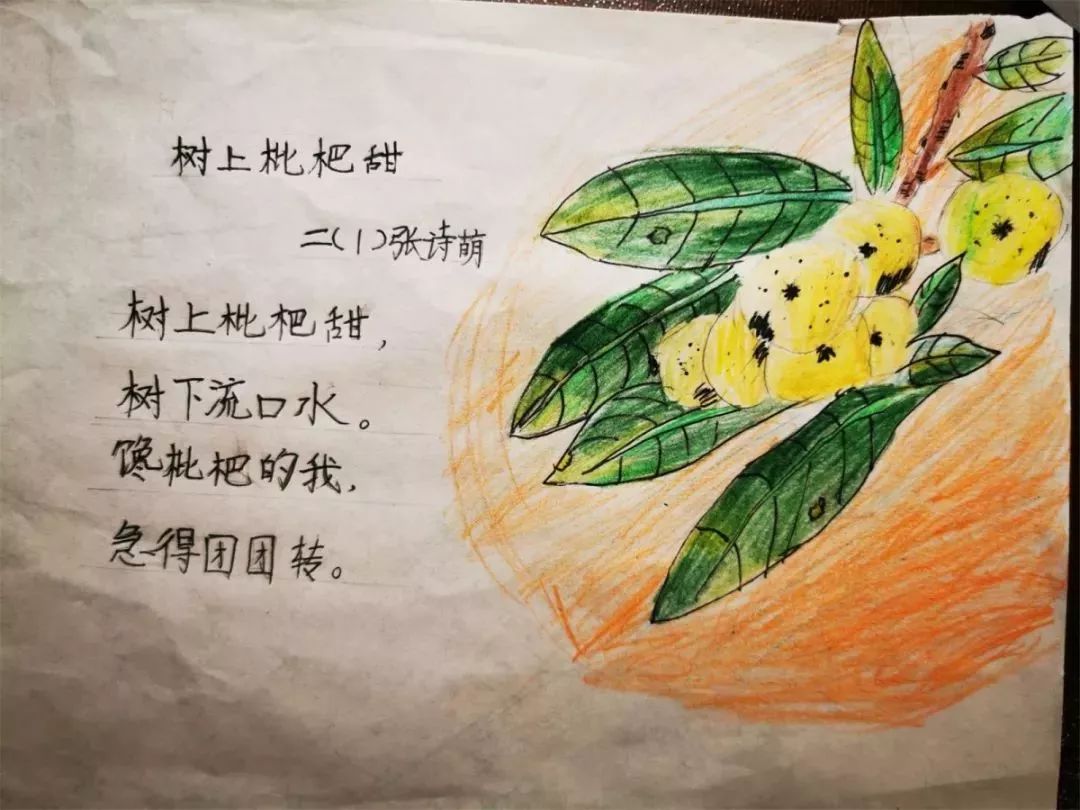 树上枇杷甜
二(1)张诗萌
树上枇杷甜，
树下流口水。
馋枇杷的我，
急得团团转。